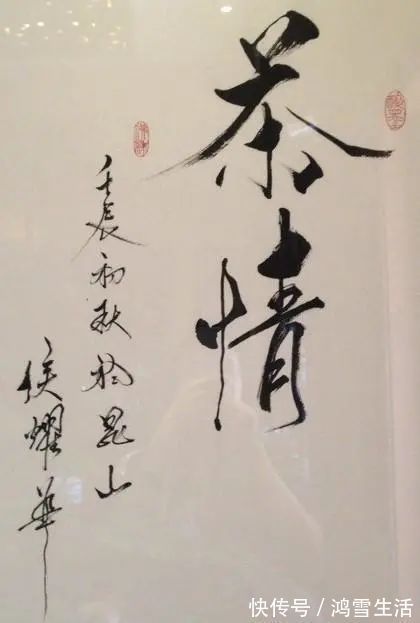 茶情
壬辰初秋於昆山
侯耀華
快传号/鸿雪生活